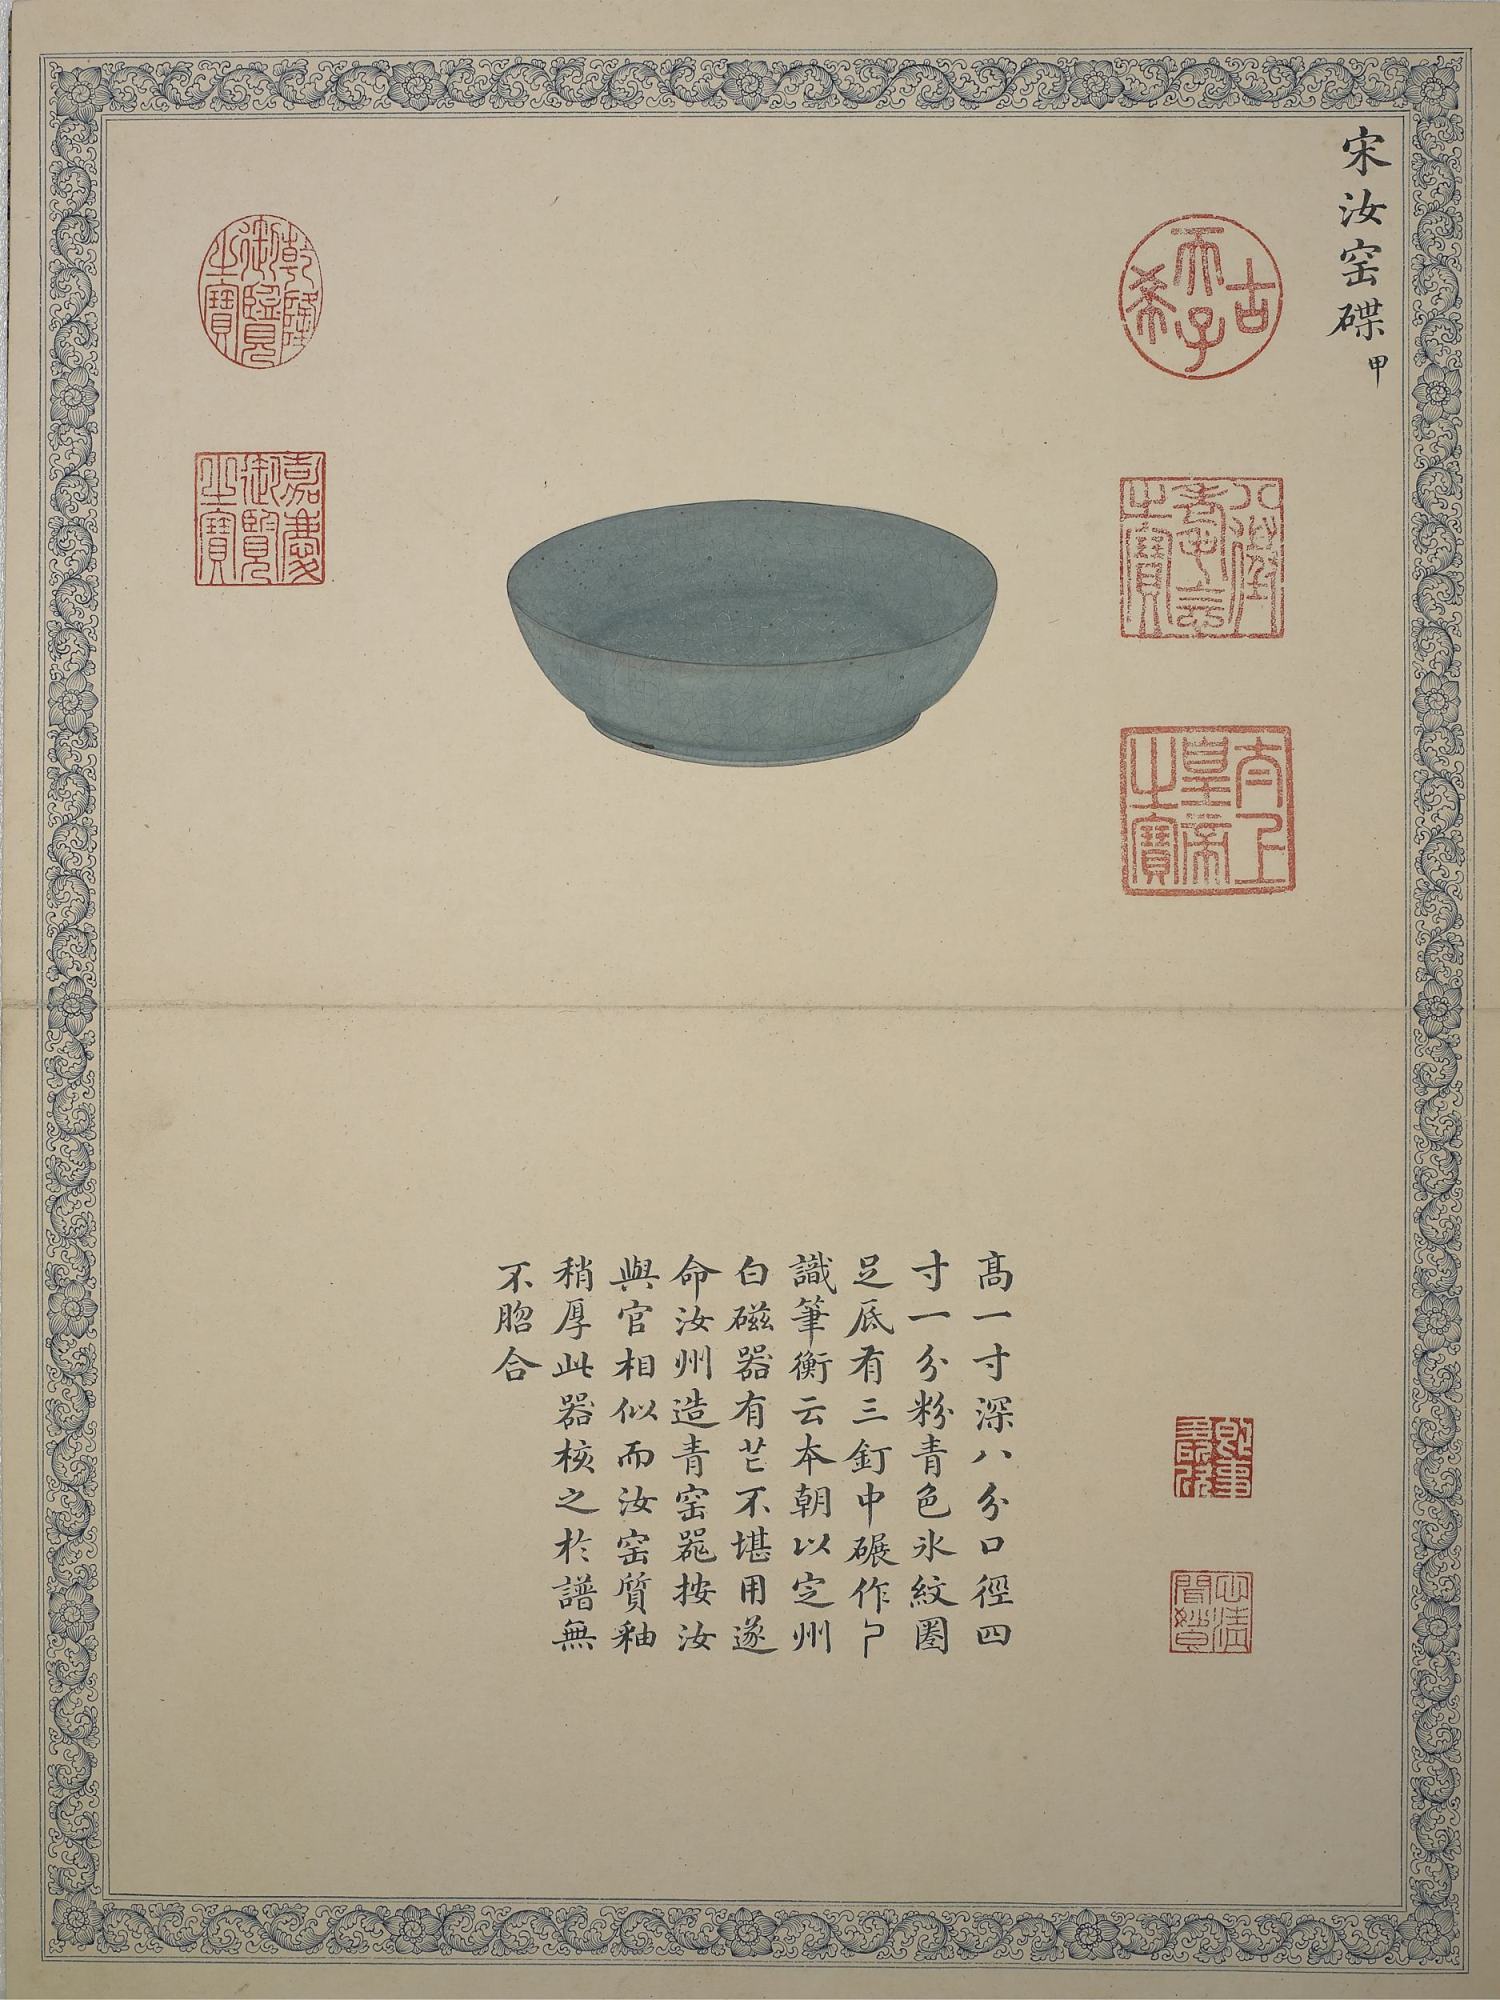 宋汝窑碟甲
古希天子
八徵耄念之寶
太上皇帝之寶
乾隆御覽之寶
嘉慶御覽之寶
高一寸深八分口徑四
寸一分粉青色氷紋圈
足底有三釘中碾作𠃛
識筆衡云本朝以定州
白磁器有芒不堪用遂
命汝州造青窑器按汝
與官相似而汝窑質釉
稍厚此器核之於譜無
不脗合